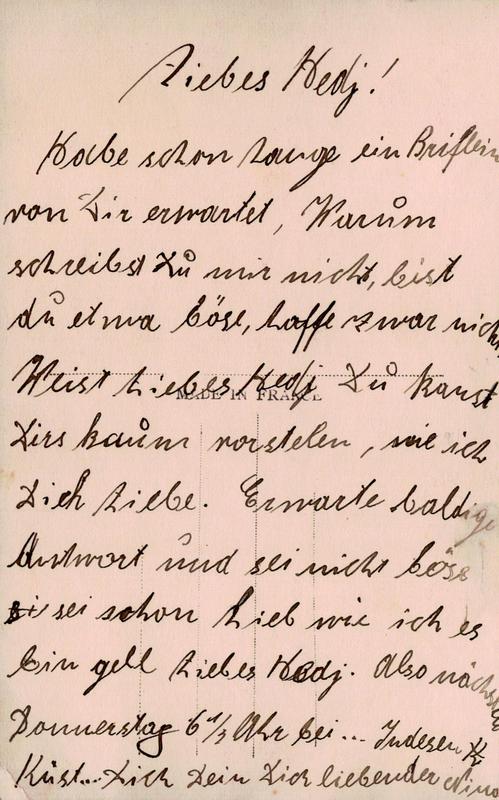 Liebes Hedj!
Habe schon lange ein Briflein
von Dir erwartet, Warum
schreibst Du mir nicht, bist
du etwa böse, hoffe zwar nicht
Weist Liebes Hedj Du kanst
MADE IN FRANCE
Dirs kaum vorstelen, wie ich
Dich Liebe. Erwarte baldige
Antwort und sei nicht böse
sei schon Lieb wie ich es
bin gell Liebes Hedj. Also nächsten
Donnerstag 6 1/2 Uhr bei... Indesen
Küst... Dich Dein Dich liebender Nino